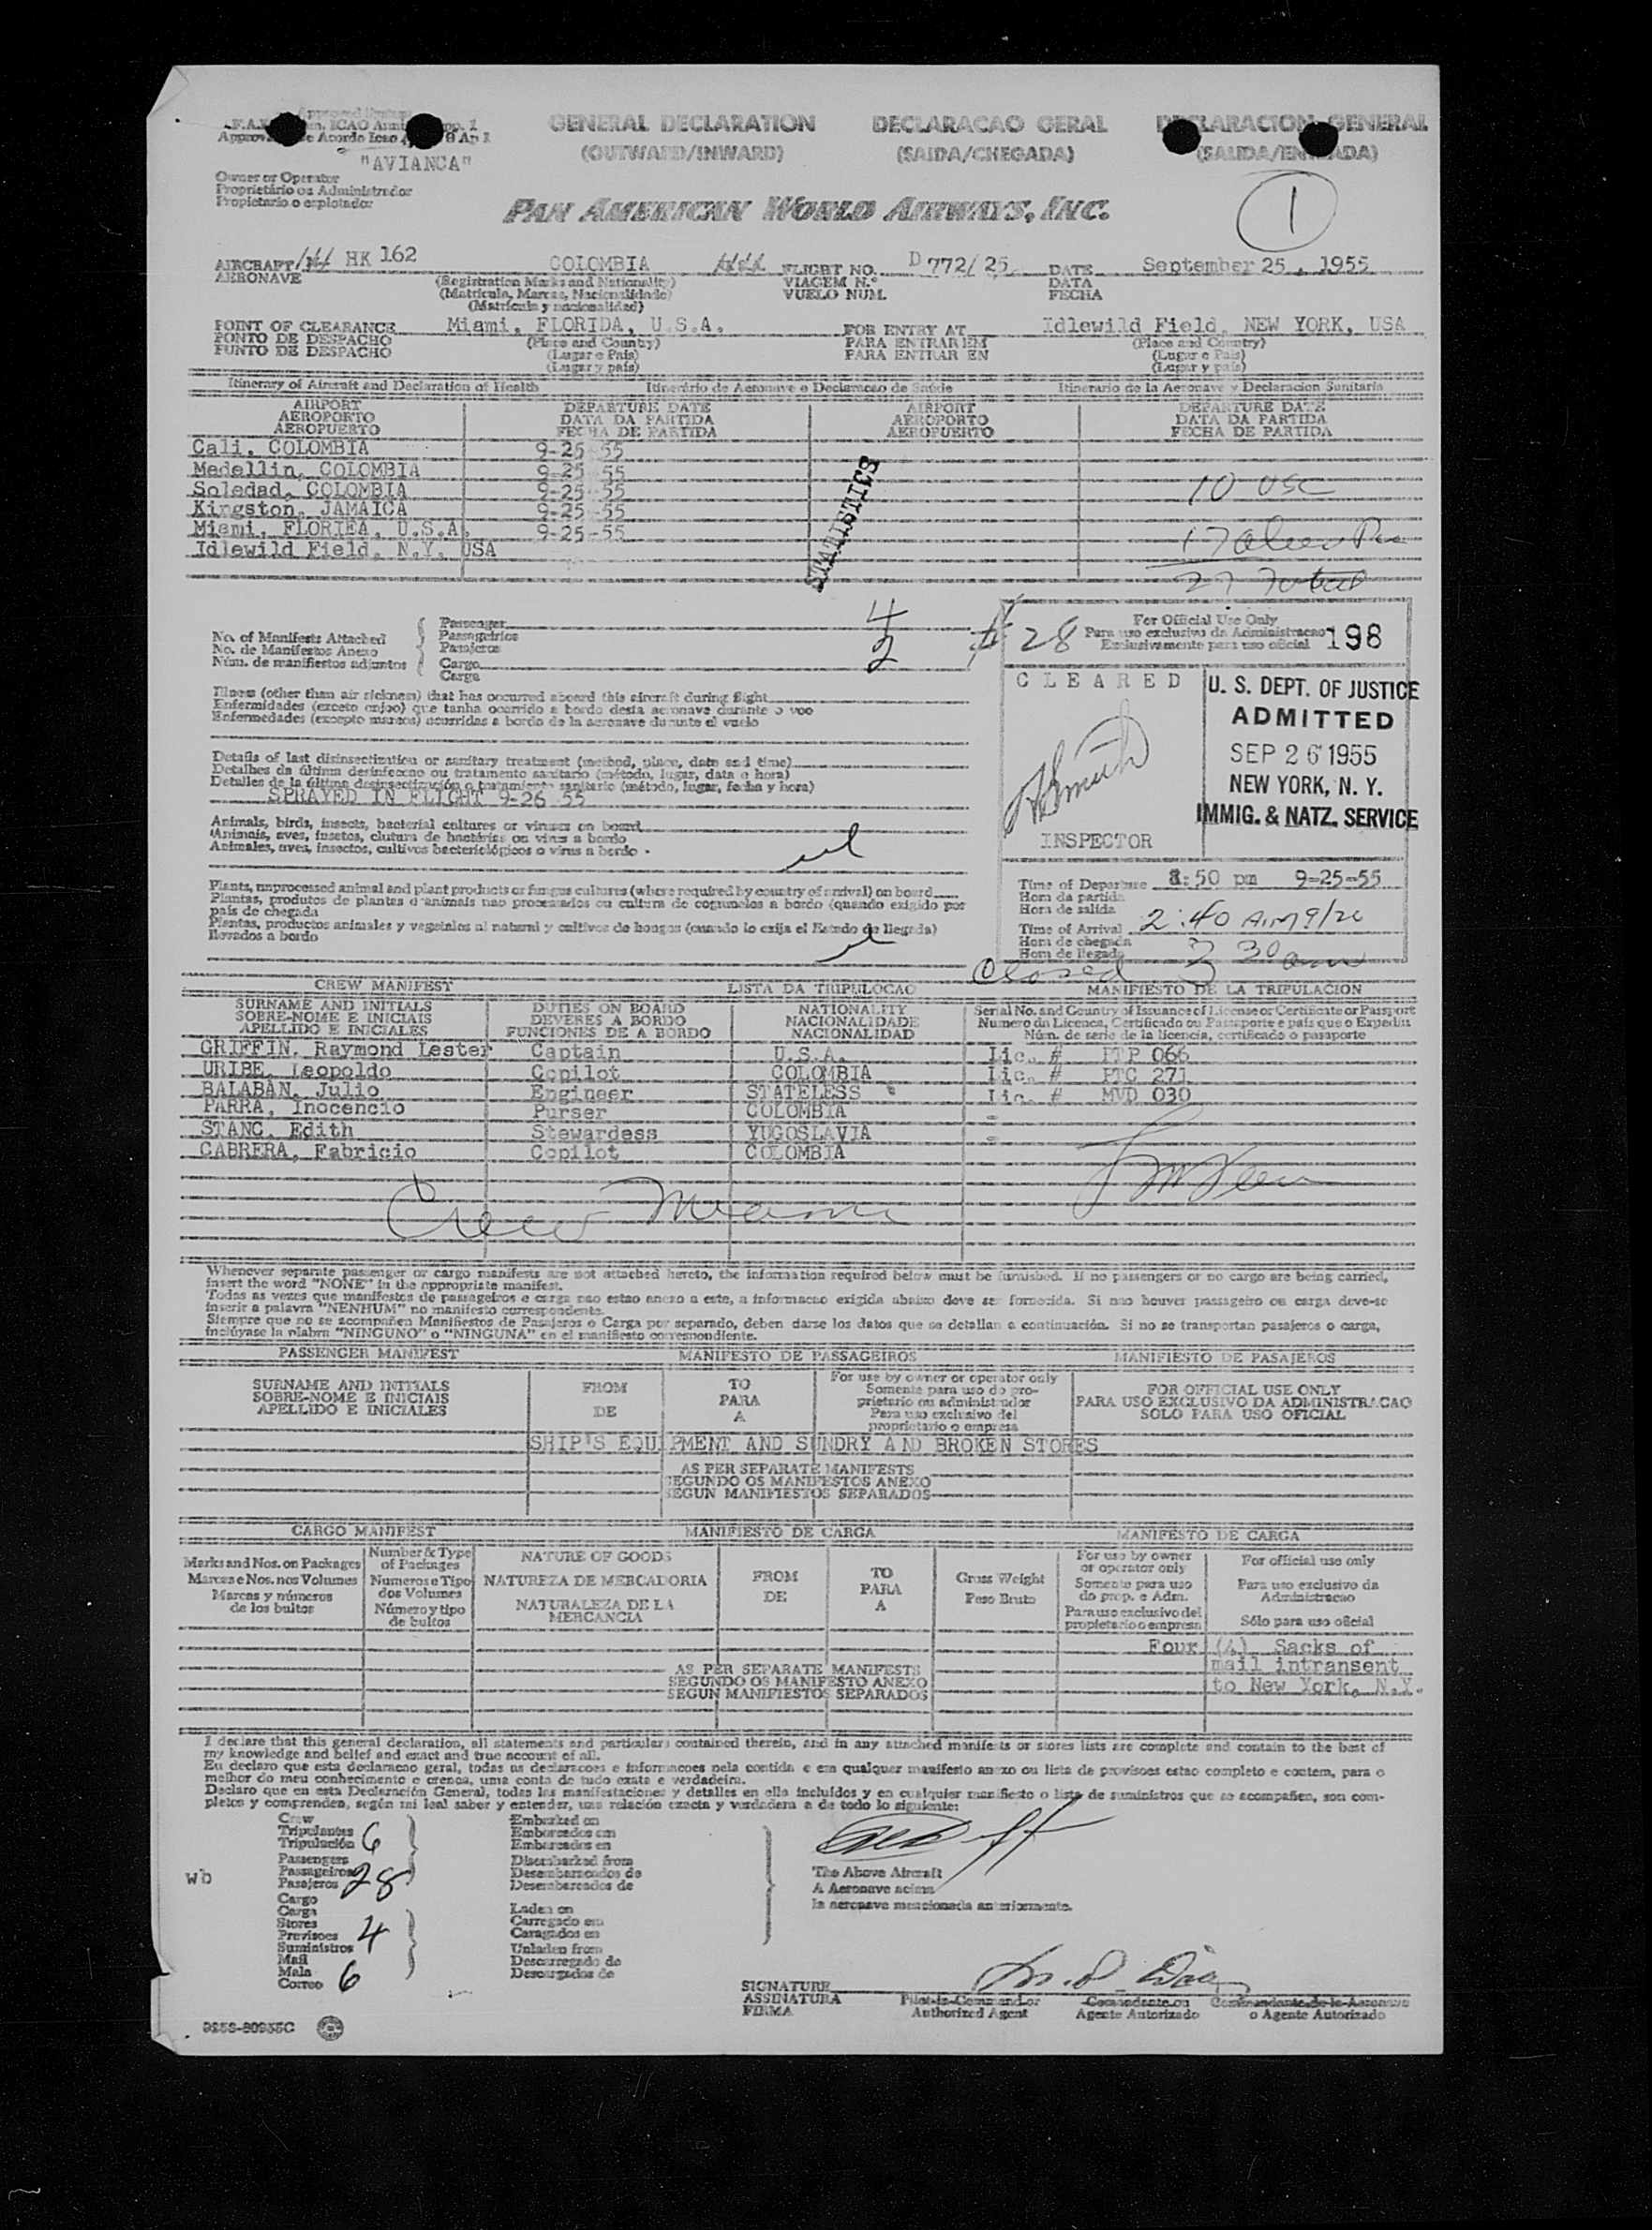 "AVIANCA"
GENERAL DECLARATION DECLARACAO GERAL DECLARACION GENERAL
(OUTWARD/INWARD) (SAIDA/CHEGADA) (SALIDA/ENTRADA)
Owner or Operator
Proprietário ou Administrador
Propietario o explotador
PAN AMERICAN WORLD AIRWAYS, INC.
1
AIRCRAFT HK 162 COLOMBIA FLIGHT NO. D 772/25 DATE September 25, 1955
AERONAVE (Registration Marks and Nationality) VIAGEM N.º DATA
(Matricula, Marcas, Nacionalidade) VUELO NUM. FECHA
(Matrícula y nacionalidad)
POINT OF CLEARANCE Miami, FLORIDA, U.S.A. FOR ENTRY AT Idlewild Field, NEW YORK, USA
PONTO DE DESPACHO (Place and Country) PARA ENTRAR EM (Place and Country)
PUNTO DE DESPACHO (Lugar e País) PARA ENTRAR EN (Lugar e País)
(Lugar y país) (Lugar y país)
Itinerary of Aircraft and Declaration of Health Itinerário de Aeronave e Declaracao de Saúde Itinerario de la Aeronave y Declaracion Sanitaria
AIRPORT DEPARTURE DATE AIRPORT DEPARTURE DATE
AEROPORTO DATA DA PARTIDA AEROPORTO DATA DA PARTIDA
AEROPUERTO FECHA DE PARTIDA AEROPUERTO FECHA DE PARTIDA
Cali, COLOMBIA 9-25-55
Medellin, COLOMBIA 9-25-55
Soledad, COLOMBIA 9-25-55 10 USC
Kingston, JAMAICA 9-25-55
Miami, FLORIDA, U.S.A. 9-25-55 17
Idlewild Field, N.Y. USA
STATISTICS
27 Total
Passenger 4
No. of Manifests Attached Passageiros
No. de Manifestos Anexo Pasajeros
Núm. de manifiestos adjuntos Cargo 2
Carga
For Official Use Only
# 28 Para uso exclusivo da Administracao 198
Exclusivamente para uso oficial
CLEARED
INSPECTOR
U. S. DEPT. OF JUSTICE
ADMITTED
SEP 26 1955
NEW YORK, N. Y.
IMMIG. & NATZ. SERVICE
Illness (other than air sickness) that has occurred aboard this aircraft during flight
Enfermidades (exceto enjoo) que tanha ocorrido a bordo desta aeronave durante o voo
Enfermedades (excepto mareos) ocurridas a bordo de la aeronave durante el vuelo
Details of last disinsectization or sanitary treatment (method, place, date and time)
Detalhes da última desinfeccao ou tratamento sanitario (método, lugar, data e hora)
Detalles de la última desinsectización o tratamiento sanitario (método, lugar, fecha y hora)
SPRAYED IN FLIGHT 9-26 55
Animals, birds, insects, bacterial cultures or viruses on board
Animais, aves, insetos, clutura de bactérias ou virus a bordo
Animales, aves, insectos, cultivos bacteriológicos o virus a bordo
Plants, unprocessed animal and plant products or fungus cultures (where required by country of arrival) on board
Plantas, produtos de plantas d'animais nao processados ou cultura de cogumelos a bordo (quando exigido por
pais de chegada
Plantas, productos animales y vegetales al natural y cultivos de hongos (cuando lo exija el Estado de llegada)
llevados a bordo
Time of Departure 8:50 pm 9-25-55
Hora da partida
Hora de salida
Time of Arrival 2:40 A.M 9/26
Hora de chegada
Hora de llegada
Closed 3 30 am
CREW MANIFEST LISTA DA TRIPULOCAO MANIFIESTO DE LA TRIPULACION
SURNAME AND INITIALS DUTIES ON BOARD NATIONALITY Serial No. and Country of Issuance of License or Certificate or Passport
SOBRE-NOME E INICIAIS DEVERES A BORDO NACIONALIDADE Numero da Licenca, Certificado ou Passaporte e pais que o Expediu
APELLIDO E INICIALES FUNCIONES DE A BORDO NACIONALIDAD Núm. de serie de la licencia, certificado o pasaporte
GRIFFIN, Raymond Lester Captain U.S.A. Lic. # PTP 066
URIBE, Leopoldo Copilot COLOMBIA Lic. # PTC 271
BALABAN, Julio Engineer STATELESS Lic. # MVD 030
PARRA, Inocencio Purser COLOMBIA -
STANC, Edith Stewardess YUGOSLAVIA -
CABRERA, Fabricio Copilot COLOMBIA
Crew Miami
Whenever separate passenger or cargo manifests are not attached hereto, the information required below must be furnished. If no passengers or no cargo are being carried,
insert the word "NONE" in the appropriate manifest.
Todas as vezes que manifestos de passageiros e carga nao estao anexo a este, a informacao exigida abaixo deve ser fornecida. Si nao houver passageiro ou carga deve-se
inserir a palavra "NENHUM" no manifesto correspondente.
Siempre que no se acompañen Manifiestos de Pasajeros o Carga por separado, deben darse los datos que se detallan a continuación. Si no se transportan pasajeros o carga,
inclúyase la plabra "NINGUNO" o "NINGUNA" en el manifiesto correspondiente.
PASSENGER MANIFEST MANIFESTO DE PASSAGEIROS MANIFIESTO DE PASAJEROS
SURNAME AND INITIALS FROM TO For use by owner or operator only FOR OFFICIAL USE ONLY
SOBRE-NOME E INICIAIS DE PARA Somente para uso do pro- PARA USO EXCLUSIVO DA ADMINISTRACAO
APELLIDO E INICIALES A prietario ou administrador SOLO PARA USO OFICIAL
Para uso exclusivo del
proprietario o empresa
SHIP'S EQUIPMENT AND SUNDRY AND BROKEN STORES
AS PER SEPARATE MANIFESTS
SEGUNDO OS MANIFESTOS ANEXO
SEGUN MANIFIESTOS SEPARADOS
CARGO MANIFEST MANIFIESTO DE CARGA MANIFESTO DE CARGA
Marks and Nos. on Packages Number & Type of Packages NATURE OF GOODS FROM TO Gross Weight For use by owner or operator only For official use only
Marcas e Nos. nos Volumes Numeros e Tipo dos Volumes NATUREZA DE MERCADORIA DE PARA Peso Bruto Somente para uso do prop. e Adm. Para uso exclusivo da Administracao
Marcas y números de los bultos Número y tipo de bultos NATURALEZA DE LA MERCANCIA A Para uso exclusivo del propietario o empresa Sólo para uso oficial
Four (4) Sacks of
mail intransent
to New York, N.Y.
AS PER SEPARATE MANIFESTS
SEGUNDO OS MANIFESTO ANEXO
SEGUN MANIFIESTOS SEPARADOS
I declare that this general declaration, all statements and particulars contained therein, and in any attached manifests or stores lists are complete and contain to the best of
my knowledge and belief and exact and true account of all.
Eu declaro que esta declaracao geral, todas as declaracoes e informacoes nela contida e em qualquer manifesto anexo ou lista de provisoes estao completo e contem, para o
melhor do meu conhecimento e crenca, uma conta de tudo exata e verdadeira.
Declaro que en esta Declaración General, todas las manifestaciones y detalles en ella incluídos y en cualquier manifiesto o lista de suministros que se acompañen, son com-
pletos y comprenden, según mi leal saber y entender, una relación exacta y verdadera a de todo lo siguiente:
Crew Embarked on
Tripulantes 6 Embarcados em
Tripulación Embarcados en
Passengers Disembarked from
Passageiros 28 Desembarcados de
Pasajeros Desembarcados de
wb
The Above Aircraft
A Aeronave acima
la aeronave mencionada anteriormente.
Cargo
Carga Laden on
Stores Carregado em
Previsoes 4 Cargados en
Suministros Unladen from
Mail Descarregado de
Mala 6 Descargados de
Correo
SIGNATURE
ASSINATURA Pilot-in-Command or Comandante ou Comandante de la Aeronave
FIRMA Authorized Agent Agente Autorizado o Agente Autorizado